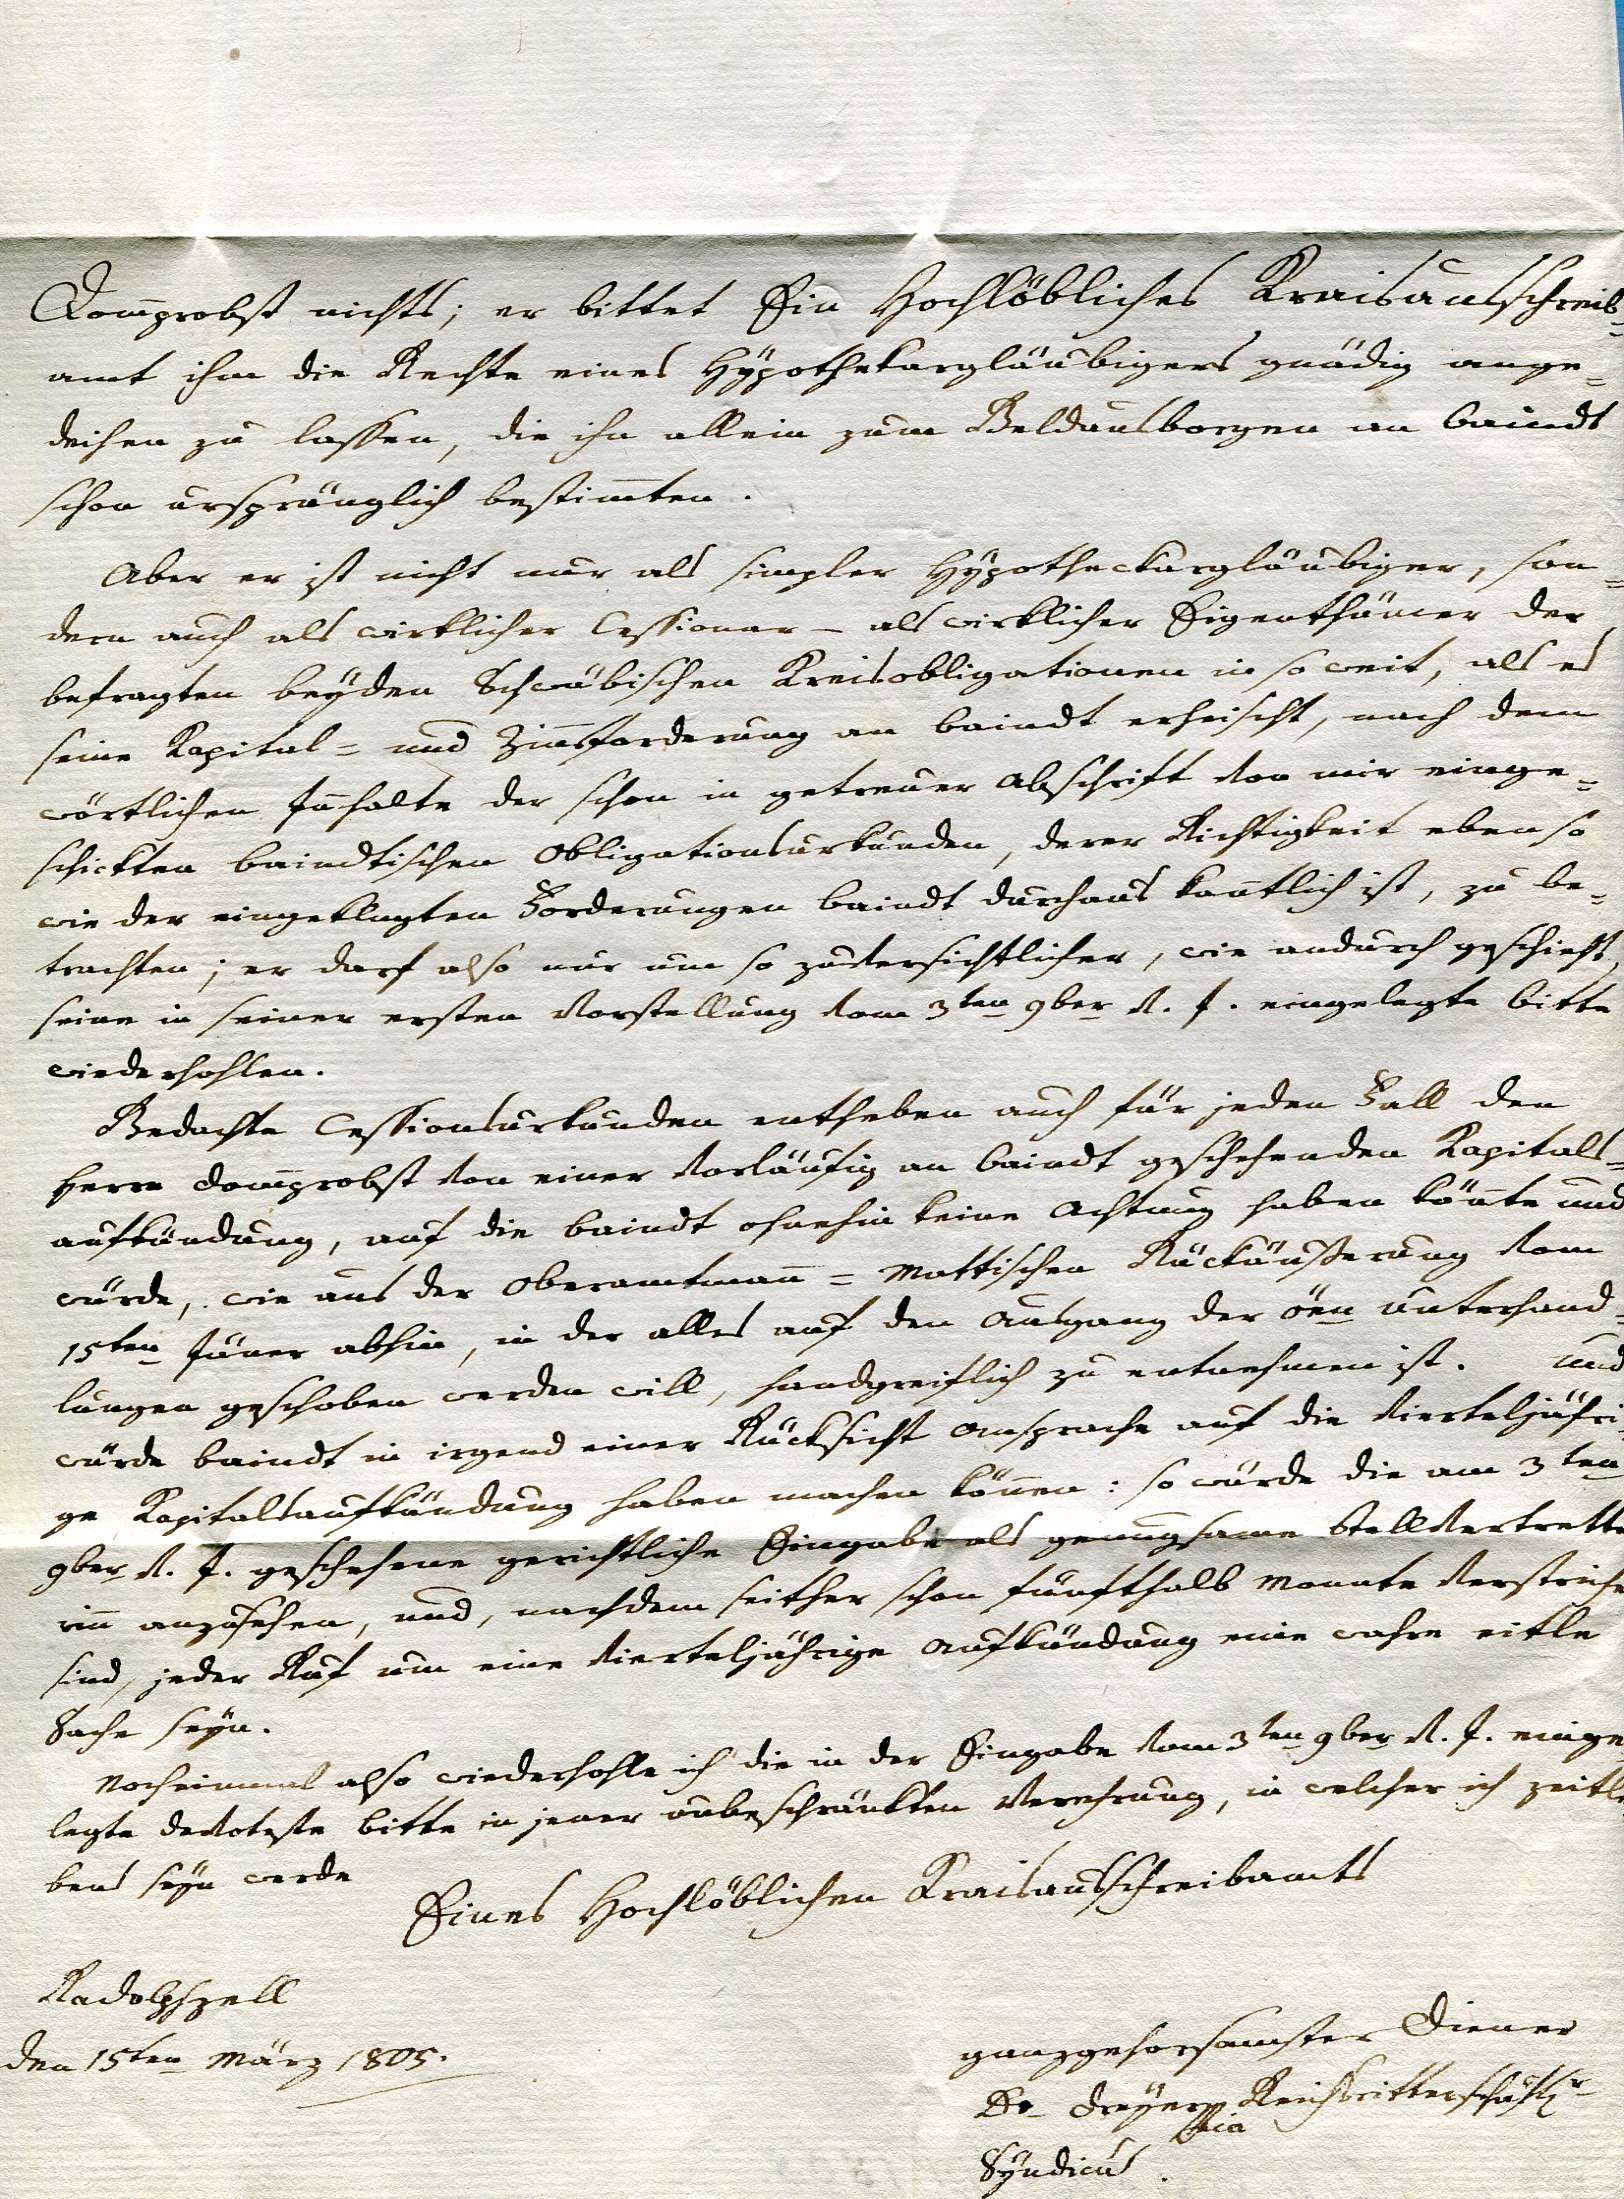 Domprobst nichts; er bittet Ein Hochlöbliches Kraisausschreib¬
amt ihm die Rechte eines Hÿpothekargläubigers gnädig ange¬
deihen zu lassen, die ihn allein zum Geldausborgen an Baindt
schon ursprünglich bestimten.
Aber er ist nicht nur als simpler Hÿpotheckargläubiger, son¬
dern auch als wirklicher Cessionar – als wirklicher Eigenthümer der
befragten beÿden Schwäbischen Kreisobligationen in so weit, als es
seine Kapital- und Zinsforderung an Baindt erheischt, nach dem
wörtlichen Innhalte der schon in getreuer Abschrift von mir einge¬
schickten Baindtischen Obligationsurkunden, derer Richtigkeit eben so
wie der eingeklagten Forderungen Baindt durchaus kantlich ist, zu be¬
trachten; er darf also nur um so zuversichtlicher, wie andurch geschieht,
seine in seiner ersten Vorstellung vom 3ten 9ber v. J. eingelegte Bitte
wiederhohlen.
Bedachte Cessionsurkunden entheben auch für jeden Fall den
Herrn Domprobst von einer vorläufig an Baindt geschehenden Kapitals¬
aufkündung, auf die Baindt ohnehin keine Achtung haben könte und
würde, wie aus der Oberamtman-Mattischen Rückäußerung vom
15ten Jäner abhin, in der alles auf den Ausgang der öen Unterhand¬
lungen geschoben werden will, handgreiflich zu entnehmen ist. Und
würde Baindt in irgend einer Rücksicht Ansprache auf die vierteljähri¬
ge Kapitalsaufkündung haben machen können: so würde die am 3ten
9ber v. J. geschehene gerichtliche Eingabe als genugsame Stellvertrette
rin anzusehen, und, nachdem seither schon fünfthalb Monate verstriche
sind, jeder Ruf um eine vierteljährige Aufkündung eine wahre eitle
Sache seÿn.
Nocheinmal also wiederhohle ich die in der Eingabe vom 3ten 9ber v. J. einge
legte devoteste Bitte in jener unbeschränkten Verehrung, in welcher ich zeitle
bens seÿn werde
Eines Hochlöblichen Kraisausschreibamts
Radolphzell
den 15ten März 1805.
ganzgehorsamster Diener
Dr. Dreÿer Reichsritterschäftlr
Syndicus.